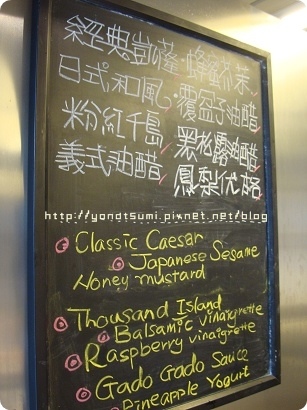 經典凱薩・蜂蜜芥茉
日式和風・覆盆子油醋
粉紅千島・黑松露油醋
義式油醋・鳳梨优格
http://yondtsumi.pixnet.net/blog
Classic Caesar
Japanese Sesame
Honey mustard
Thousand Island
Balsamic vinaigrette
Raspberry vinaigrette
Gado Gado Sauce
Pineapple Yogurt